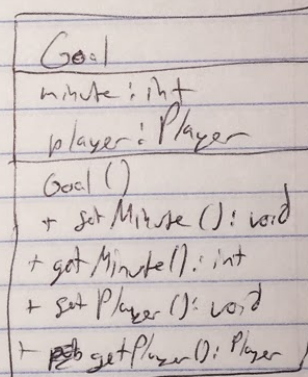 Goal
minute : int
player : Player
Goal ()
+ setMinute () : void
+ getMinute() : int
+ setPlayer () : void
+ getPlayer() : Player